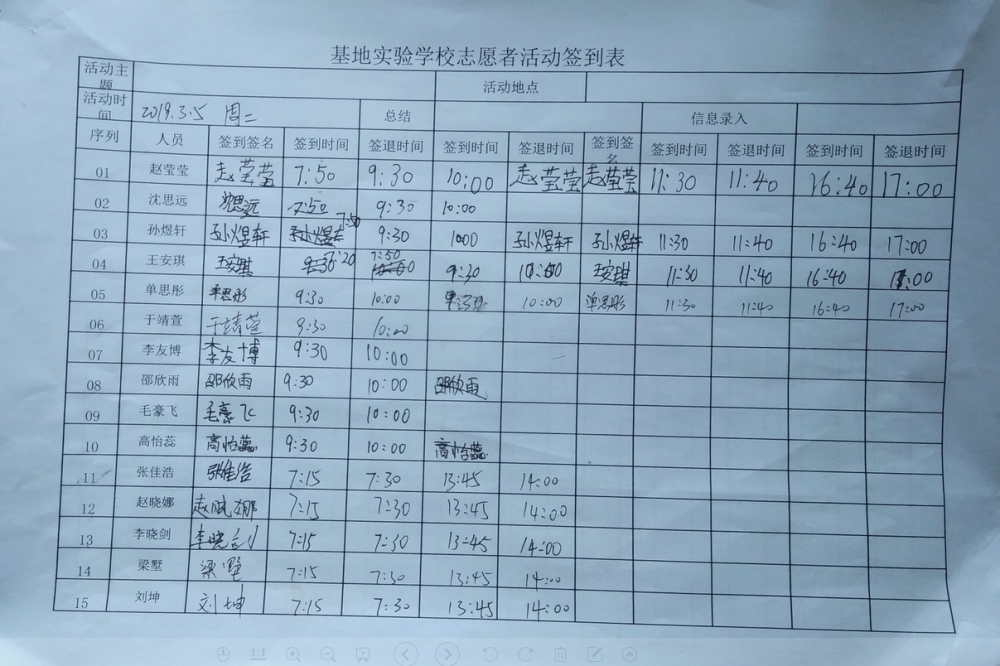 基地实验学校志愿者活动签到表
活动主题 活动地点
活动时间 2019.3.5 周二 总结 信息录入
序列 人员 签到签名 签到时间 签退时间 签到时间 签退时间 签到签名 签到时间 签退时间 签到时间 签退时间
01 赵莹莹 赵莹莹 7:50 9:30 10:00 赵莹莹 赵莹莹 11:30 11:40 16:40 17:00
02 沈思远 沈思远 7:50 9:30 10:00
03 孙煜轩 孙煜轩 孙煜轩 7:50 9:30 1000 孙煜轩 孙煜轩 11:30 11:40 16:40 17:00
04 王安琪 王安琪 7:20 7:50 9:30 10:00 王安琪 11:30 11:40 16:40 17:00
05 单思彤 单思彤 9:30 10:00 10:00 单思彤 11:30 11:40 16:40 17:00
06 于靖萱 于靖萱 9:30 10:00
07 李友博 李友博 9:30 10:00
08 邵欣雨 邵欣雨 9:30 10:00 邵欣雨
09 毛豪飞 毛豪飞 9:30 10:00
10 高怡蕊 高怡蕊 9:30 10:00 高怡蕊
11 张佳浩 张佳浩 7:15 7:30 13:45 14:00
12 赵晓娜 赵晓娜 7:15 7:30 13:45 14:00
13 李晓剑 李晓剑 7:15 7:30 13:45 14:00
14 梁墅 梁墅 7:15 7:30 13:45 14:00
15 刘坤 刘坤 7:15 7:30 13:45 14:00
1:1